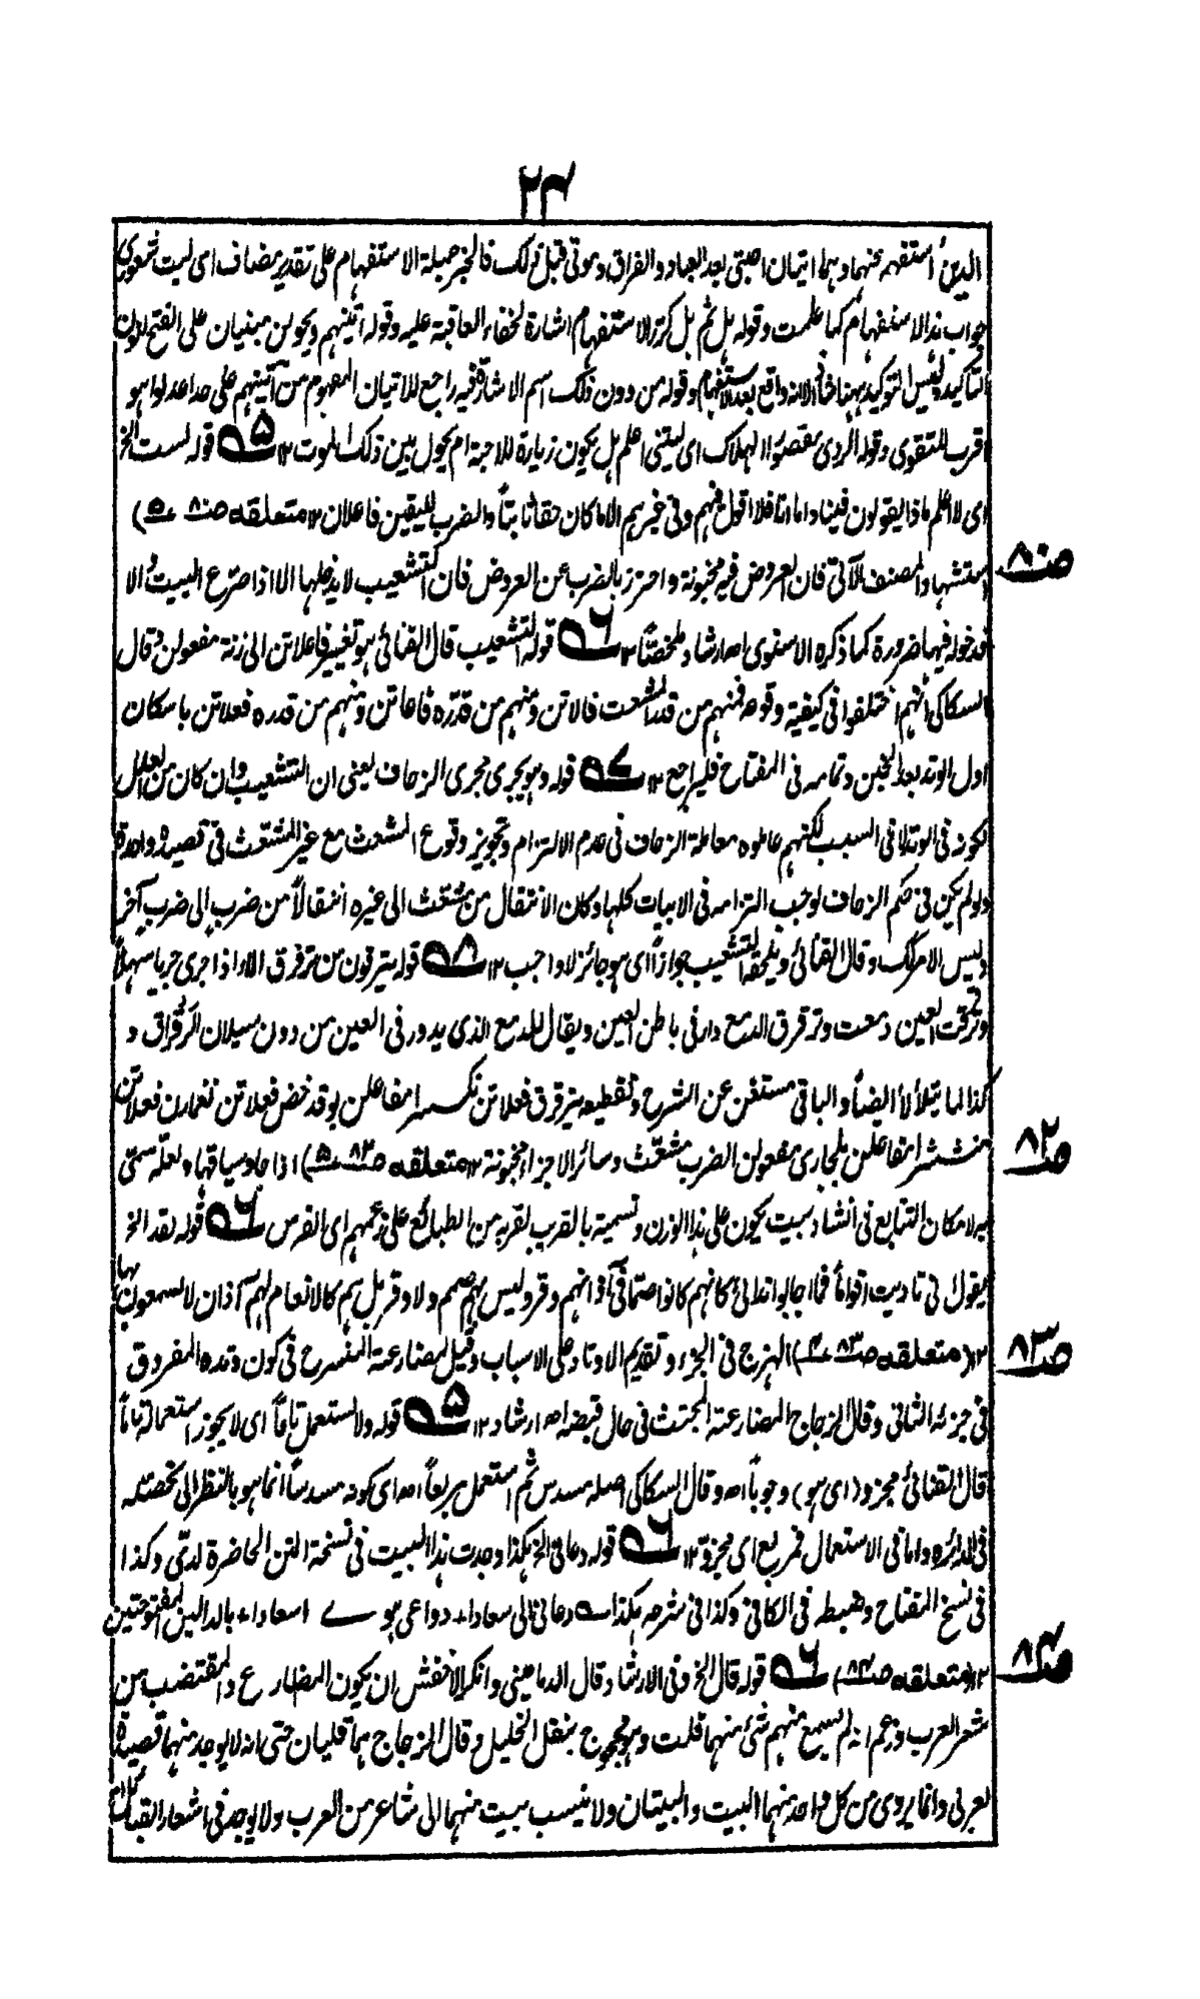 ٢٤
الدين أستفهم عنهما وهما اتيان احبتى بعد البعاد والفراق وموتى قبل ذلك فالخبر جملة الاستفهام على تقدير مضاف اى ليت شعورى
جواب هذا الاستفهام كما علمت وقوله هل ثم هل كرر الاستفهام اشارة لخفاء العاقبة عليه وقوله آتينهم ويحولن مبنيان على الفتح لنون
التاكيد وليس التوكيد ههنا شاذا لانه واقع بعد الاستفهام وقوله من دون ذلك اسم الاشارة فيه راجع للاتيان المفهوم من آتينهم على حد اعدلوا هو
اقرب للتقوى وقوله الردى مقصورًا الهلاك اى ليتنى اعلم هل يكون زيارة للاحبة ام يحول بين ذلك الموت ١٢ ۵ قوله لست الخ
اى لا اعلم ماذا يقولون فينا واما انا فلا اقول فيهم وفى غيرهم الا ما كان حقا ثابتًا والضرب لليقين فاعلان ١٢ (متعلقه صـ٨٠ ۵)
استشهاد المصنف الآتى فان العروض فيه مخبونة واحترز بالضرب عن العروض فان التشعيب لا يدخلها الا اذا صرّع البيت والا
فدخوله فيها ضرورة كما ذكره الاسنوى اهـ ارشاد ملخصًا ١٢ ٦ قوله التشعيب قال القنائى هو تغيير فاعلاتن الى زنة مفعولن وقال
السكاكى انهم اختلفوا فى كيفية وقوعه فمنهم من قدر المشعث فالاتن ومنهم من قدّره فاعاتن ومنهم من قدره فعلاتن باسكان
اول الوتد بعد الخبن وتمامه فى المفتاح فليراجع ١٢ ٧ قوله وهو يجرى مجرى الزحاف يعنى ان التشعيب وان كان من العلل
لكونه فى الوتد لا فى السبب لكنهم عاملوه معاملة الزحاف فى عدم الالتزام وتجويز وقوع المشعث مع غير المشعث فى قصيدة واحدة
ولو لم يكن فى حكم الزحاف لوجب التزامه فى الابيات كلها وكان الانتقال من مشعث الى غيره انتقالًا من ضرب الى ضرب آخر
وليس الامر كذلك وقال القنائى ويلحقه التشعيب جوازًا اى هو جائز لا واجب ١٢ ٨ قوله يترقرق من ترقرق الماء اذا جرى جريا سهلا
وترقرقت العين دمعت وترقرق الدمع دار فى باطن العين ويقال للدمع الذى يدور فى العين من دون سيلان الرقراق و
كذا لما يتلألأ ايضًا والباقى مستغن عن الشرح وتقطيعه يترقرق فعلاتن
مشعّث وسائر الاجزاء مخبونة ١٢ (متعلقه صـ٨٢ ۵) اذا جاد سياقها ولعله سمى
به لامكان التتابع فى انشاد بيت يكون على هذا الوزن وتسمية بالقريب لقربه من الطبائع على زعمهم اى الفرس ٦ قوله لقد الخ
يقول فى تاديت اقوامًا فما اجابوا ندائى كانهم كانوا صمّا فى آذانهم وقر وليس بهم صمم ولا وقر بل هم كالانعام لهم آذان لا يسمعون بها
١٢ (متعلقه صـ٨٣ ٤) الهزج فى الجزء وتقديم الاوتاد على الاسباب وقيل لمضارعته المنسرح فى كون وتده المفروق
فى جزئه الثانى وقال الزجاج لمضارعته المجتث فى حال قبضه اهـ ارشاد ١٢ ۵ قوله ولا يستعمل تامًّا اى لا يجوز استعماله تامًّا
قال القنائى مجزو (اى هو) وجوبًا اهـ وقال السكاكى اصله مسدس ثم استعمل مربعًا اهـ اى كونه مسدسًا انما هو بالنظر الى حصته
فى الدائره واما فى الاستعمال فمربع اى مجزوّ ١٢ ٦ قوله دعانى الخ هكذا وجدت هذا البيت فى نسخة المتن الحاضرة لدىّ وكذا
فى نسخ المفتاح وضبطه فى الكافى وكذا فى شرحه هكذا ـه دعانى الى سعاداء دواعى هوى سعاداء بالدالين المفتوحتين
١٢ (متعلقه صـ٨٤) ٦ قوله قال الخ وفى الارشاد وقال الدمامينى وانكر الاخفش ان يكون المضارع والمقتضب من
شعر العرب وزعم انه لم يسمع منهم شئ منهما قلت وهو محجوج بنقل الخليل وقال الزجاج هما قليان حتى انه لا يوجد منهما قصيدة
لعربى وانما يروى من كل واحد منهما البيت والبيتان ولا ينسب بيت منهما الى شاعر من العرب ولا يوجد فى اشعار القبائل
صـ٨٠
صـ٨٢
صـ٨٣
صـ٨٤